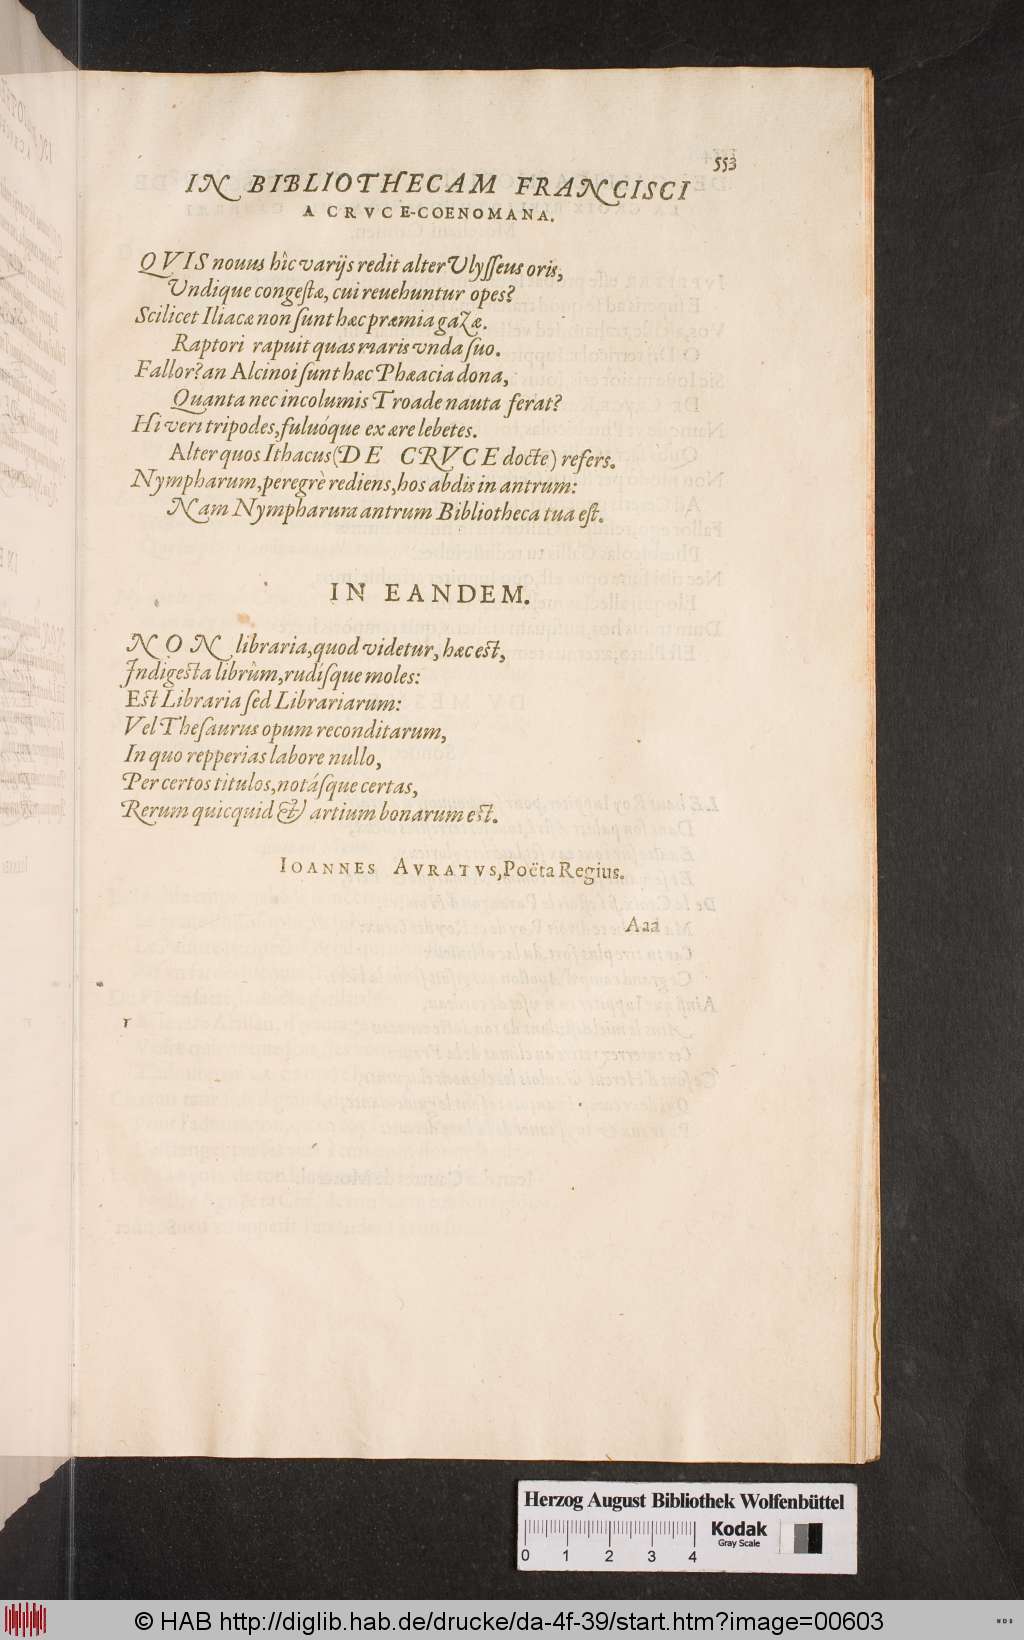 553
IN BIBLIOTHECAM FRANCISCI
A CRVCE-COENOMANA.
QVIS nouus hîc varijs redit alter Vlysseus oris,
Vndique congestæ, cui reuehuntur opes?
Scilicet Iliacæ non sunt hæc præmia gazæ.
Raptori rapuit quas maris vnda suo.
Fallor? an Alcinoi sunt hæc Phæacia dona,
Quanta nec incolumis Troade nauta ferat?
Hi veri tripodes, fuluóque ex ære lebetes.
Alter quos Ithacus (DE CRVCE docte) refers.
Nympharum, peregrè rediens, hos abdis in antrum:
Nam Nympharum antrum Bibliotheca tua est.
IN EANDEM.
NON libraria, quod videtur, hæc est,
Indigesta librûm, rudisque moles:
Est Libraria sed Librariarum:
Vel Thesaurus opum reconditarum,
In quo repperias labore nullo,
Per certos titulos, notásque certas,
Rerum quicquid & artium bonarum est.
IOANNES AVRATVS, Poëta Regius.
Aaa
Herzog August Bibliothek Wolfenbüttel
0 1 2 3 4
Kodak
Gray Scale
© HAB http://diglib.hab.de/drucke/da-4f-39/start.htm?image=00603